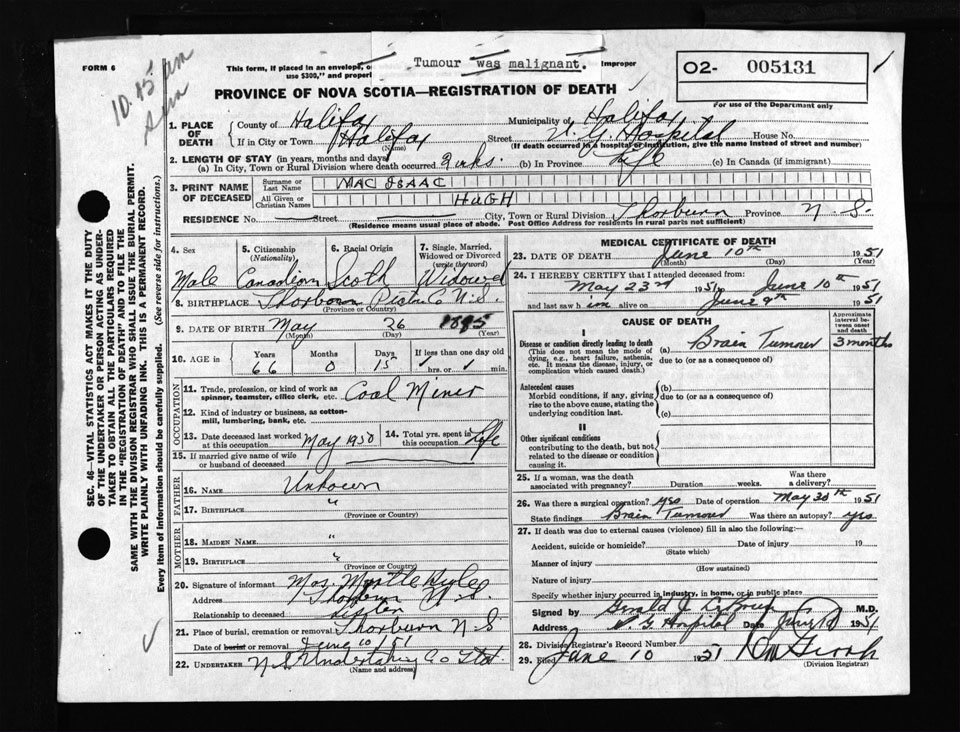 FORM 6
10.15 am
This form, if placed in an envelope, Tumour was malignant. Improper
use $300," and properl
02- 005131
PROVINCE OF NOVA SCOTIA—REGISTRATION OF DEATH
For use of the Department only
1. PLACE OF DEATH
County of Halifax Municipality of Halifax
If in City or Town Halifax (Name) Street V. G. Hospital House No.
(If death occurred in a hospital or institution, give the name instead of street and number)
2. LENGTH OF STAY (in years, months and days)
(a) In City, Town or Rural Division where death occurred 2 wks. (b) In Province Life (c) In Canada (if immigrant)
3. PRINT NAME OF DECEASED
Surname or Last Name MAC ISAAC
All Given or Christian Names HUGH
RESIDENCE No. Street City, Town or Rural Division Thorburn Province N S
(Residence means usual place of abode. Post Office Address for residents in rural parts not sufficient)
SEC. 46—VITAL STATISTICS ACT MAKES IT THE DUTY
OF THE UNDERTAKER OR PERSON ACTING AS UNDER-
TAKER TO OBTAIN ALL THE PARTICULARS REQUIRED
IN THE "REGISTRATION OF DEATH" AND TO FILE THE
SAME WITH THE DIVISION REGISTRAR WHO SHALL ISSUE THE BURIAL PERMIT.
WRITE PLAINLY WITH UNFADING INK. THIS IS A PERMANENT RECORD.
Every item of information should be carefully supplied. (See reverse side for instructions.)
4. Sex 5. Citizenship (Nationality) 6. Racial Origin 7. Single, Married, Widowed or Divorced (write the word)
Male Canadian Scoth Widowed
8. BIRTHPLACE Thorburn Pictou Co N.S.
(Province or Country)
9. DATE OF BIRTH May 26 1885
(Month) (Day) (Year)
10. AGE in Years Months Days If less than one day old
66 0 15 hrs. or min.
OCCUPATION
11. Trade, profession, or kind of work as spinner, teamster, office clerk, etc. Coal Miner
12. Kind of industry or business, as cotton-mill, lumbering, bank, etc.
13. Date deceased last worked at this occupation May 1950 14. Total yrs. spent in this occupation Life
15. If married give name of wife or husband of deceased
FATHER
16. NAME Unknown
17. BIRTHPLACE "
(Province or Country)
MOTHER
18. MAIDEN NAME "
19. BIRTHPLACE "
(Province or Country)
20. Signature of informant Mrs. Myrtle
Address Thorburn N.S.
Relationship to deceased Sister
21. Place of burial, cremation or removal Thorburn N S
Date of burial or removal June 10/51
22. UNDERTAKER N S Undertaking Co Ltd.
(Name and address)
MEDICAL CERTIFICATE OF DEATH
23. DATE OF DEATH June 10th 1951
(Month) (Day) (Year)
24. I HEREBY CERTIFY that I attended deceased from:
May 23rd 1951 to June 10th 1951
and last saw him alive on June 9th 1951
CAUSE OF DEATH
Approximate interval between onset and death
I
Disease or condition directly leading to death (a) Brain Tumour 3 months
(This does not mean the mode of dying, e.g., heart failure, asthenia, etc. It means the disease, injury, or complication which caused death.)
due to (or as a consequence of)
Antecedent causes (b)
Morbid conditions, if any, giving rise to the above cause, stating the underlying condition last.
due to (or as a consequence of)
(c)
II
Other significant conditions
contributing to the death, but not related to the disease or condition causing it.
25. If a woman, was the death associated with pregnancy? Duration weeks. Was there a delivery?
26. Was there a surgical operation? yes Date of operation May 30th 1951
State findings Brain Tumour Was there an autopsy? yes
27. If death was due to external causes (violence) fill in also the following:—
Accident, suicide or homicide? Date of injury 19
(State which)
Manner of injury
(How sustained)
Nature of injury
Specify whether injury occurred in industry, in home, or in public place
Signed by Gerald J. M.D.
Address V. G. Hospital Date June 1951
28. Division Registrar's Record Number
29. Filed June 10 1951
(Division Registrar)